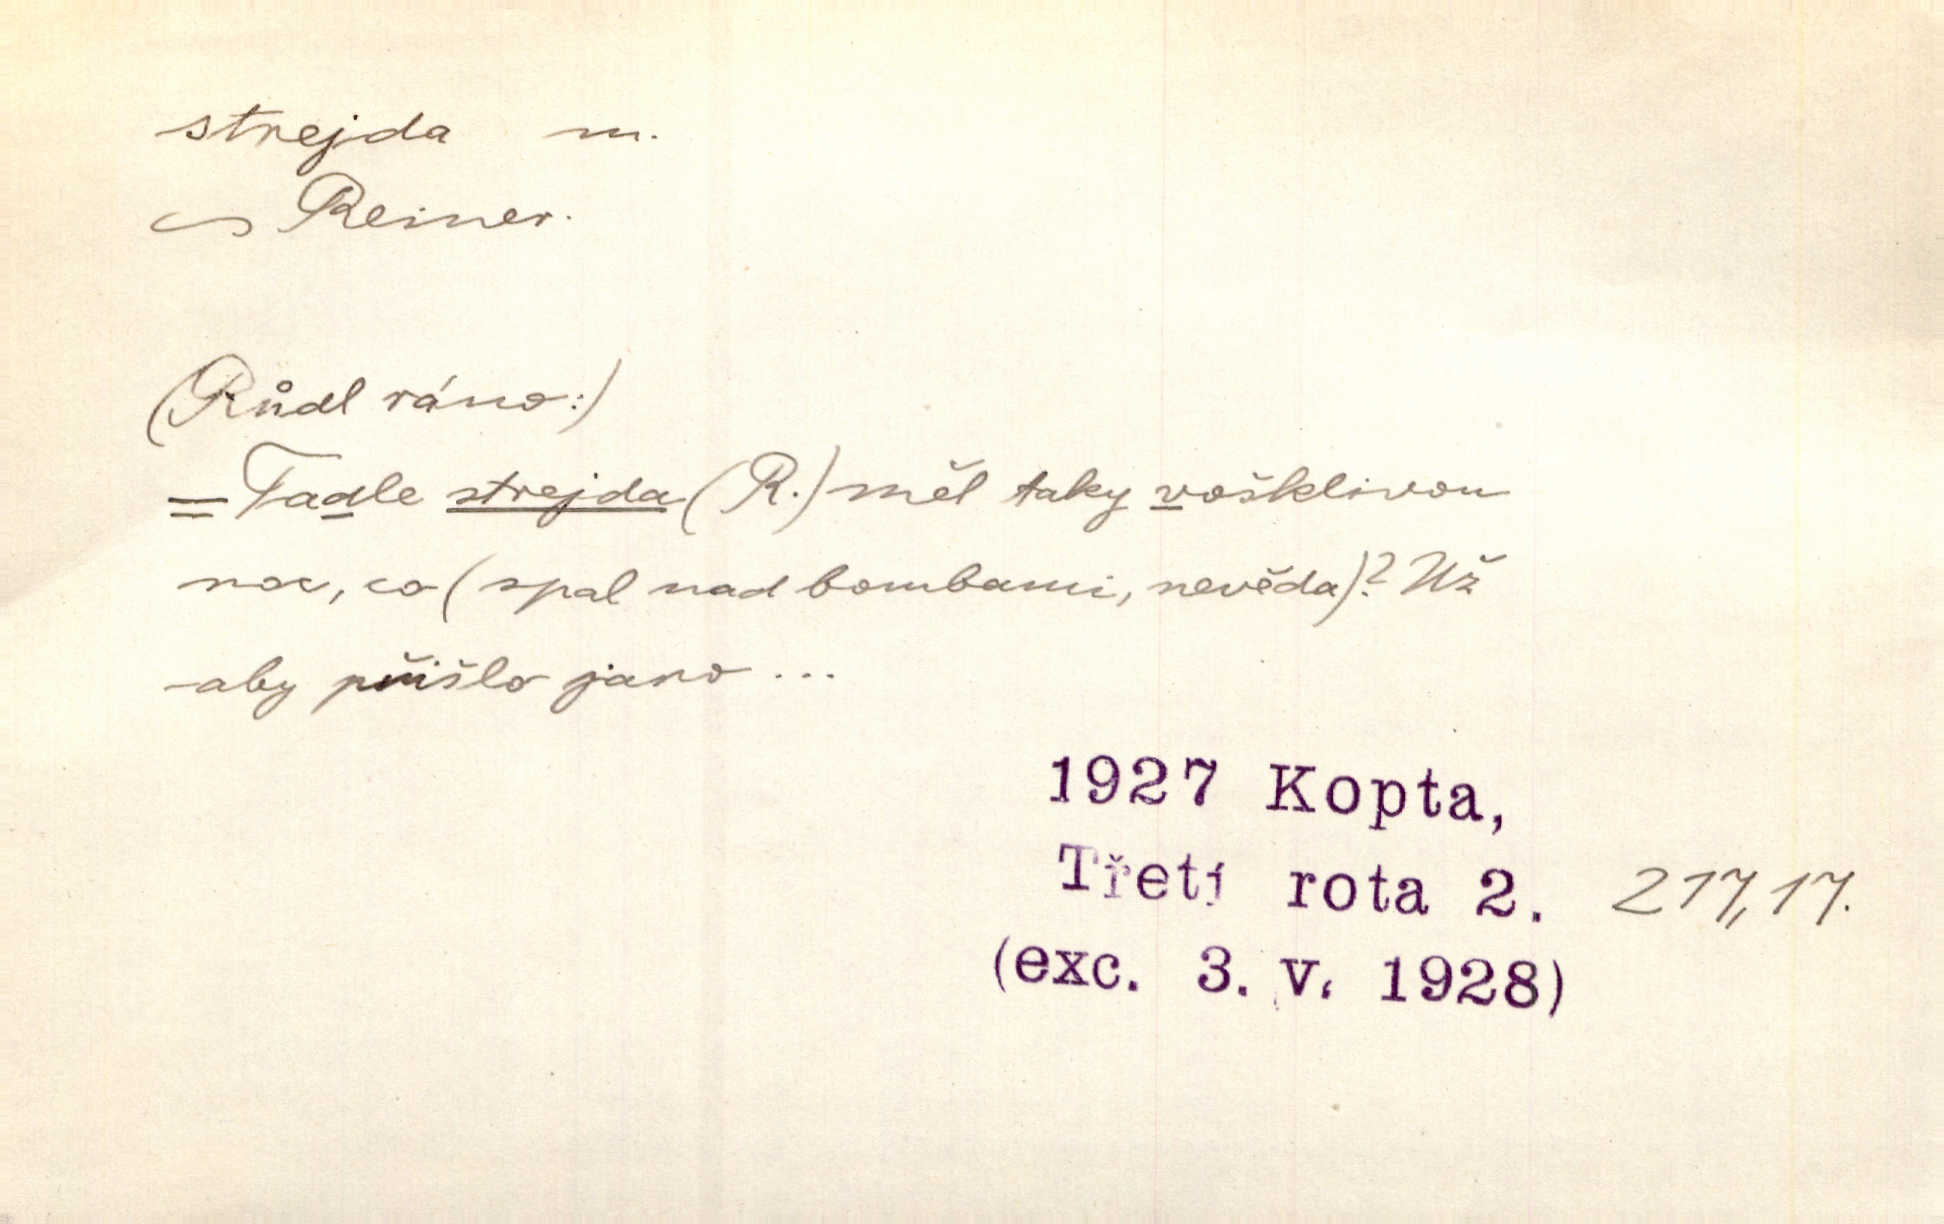 strejda m.
~ Reiner.
(Růdl ráno:)
= Tadle strejda (R.) měl taky vošklivou
noc, co (spal nad bombami, nevěda)? Už
aby přišlo jaro ...
1927 Kopta,
Třetí rota 2. 217,17.
(exc. 3. V. 1928)